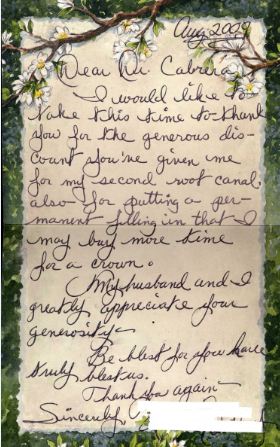 Aug 2009
Dear Dr. Cabrera,
I would like to
take this time to thank
you for the generous dis-
count you've given me
for my second root canal.
also for putting a per-
manent filling in that I
may buy more time
for a crown.
My husband and I
greatly appreciate your
generosity.
Be blest for you have
truly blest us.
Thank you again
Sincerely,